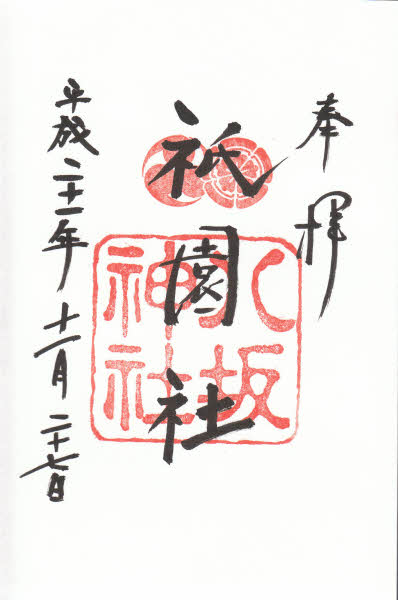 奉拝
祇園社
八坂
神社
平成二十一年十一月二十七日